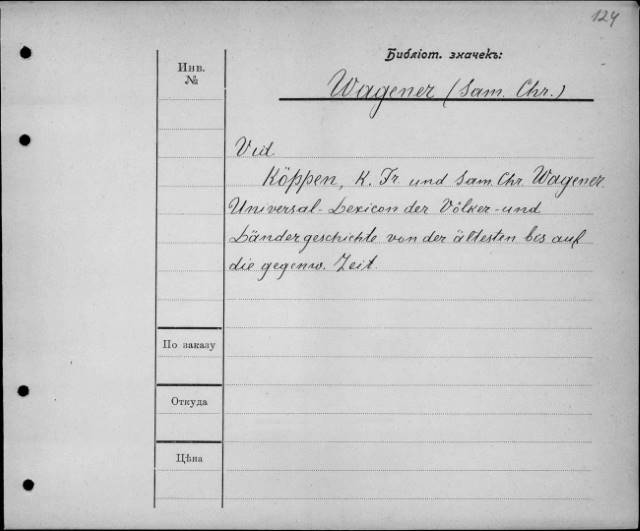 124
Библіот. значекъ:
Инв.
№
Wagener (Sam. Chr.)
Vid.
Köppen, K. Fr. und Sam. Chr. Wagener.
Universal-Lexicon der Völker- und
Ländergeschichte von der ältesten bis auf
die gegenw. Zeit.
По заказу
Откуда
Цѣна